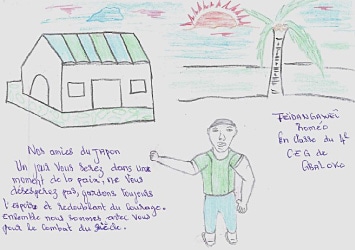 Nos amies du JAPON
Un jour vous serez dans une
moment de la paix, ne vous
désesperez pas, gardons toujours
l'espoire et redoublant du courage.
ensemble nous sommes avec vous
pour le combat du siècle.
ROMEO
En classe du 4e
CEG de